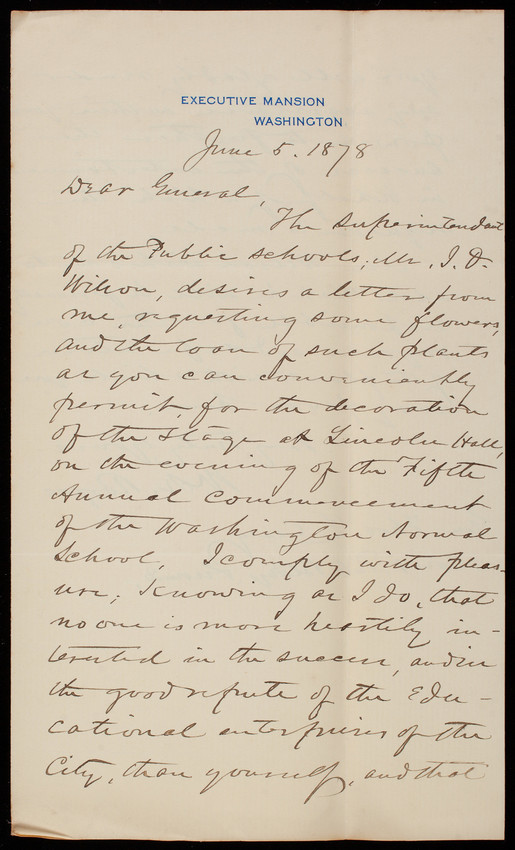 EXECUTIVE MANSION
WASHINGTON
June 5. 1878
Dear General,
The Superintendent
of the Public schools, Mr. J. O.
Wilson, desires a letter from
me, requesting some flowers,
and the loan of such plants
as you can conveniently
permit, for the decoration
of the stage at Lincoln Hall,
on the evening of the Fifth
Annual Commencement
of the Washington Normal
School, I comply with pleas-
ure; knowing as I do, that
no one is more heartily in-
terested in the success, and in
the good repute of the Edu-
cational enterprises of the
City, than yourself, and that